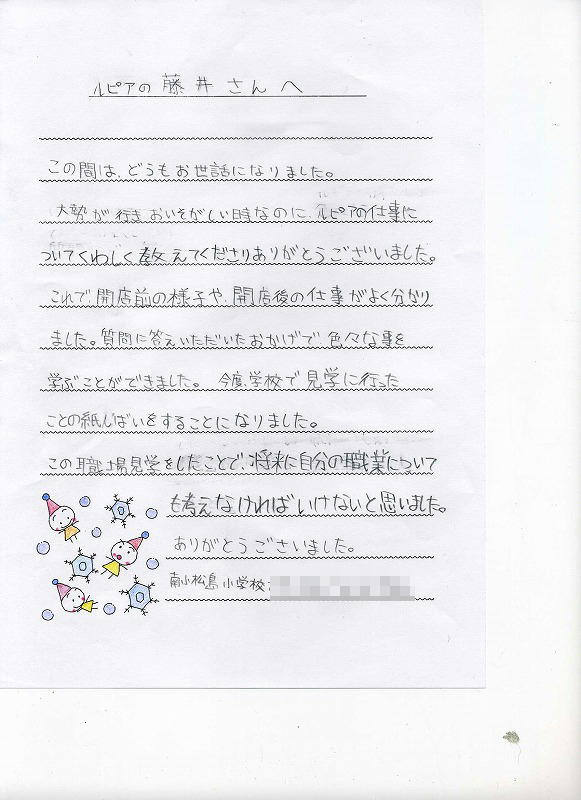 ルピアの藤井さんへ
この間は、どうもお世話になりました。
大勢が行きおいそがしい時なのに、ルピアの仕事に
ついてくわしく教えてくださりありがとうございました。
これで、開店前の様子や、開店後の仕事がよく分かり
ました。質問に答えいただいたおかげで、色々な事を
学ぶことができました。今度、学校で見学に行った
ことの紙しばいをすることになりました。
この職場見学をしたことで、将来に自分の職業について
も考えなければいけないと思いました。
ありがとうございました。
南小松島小学校